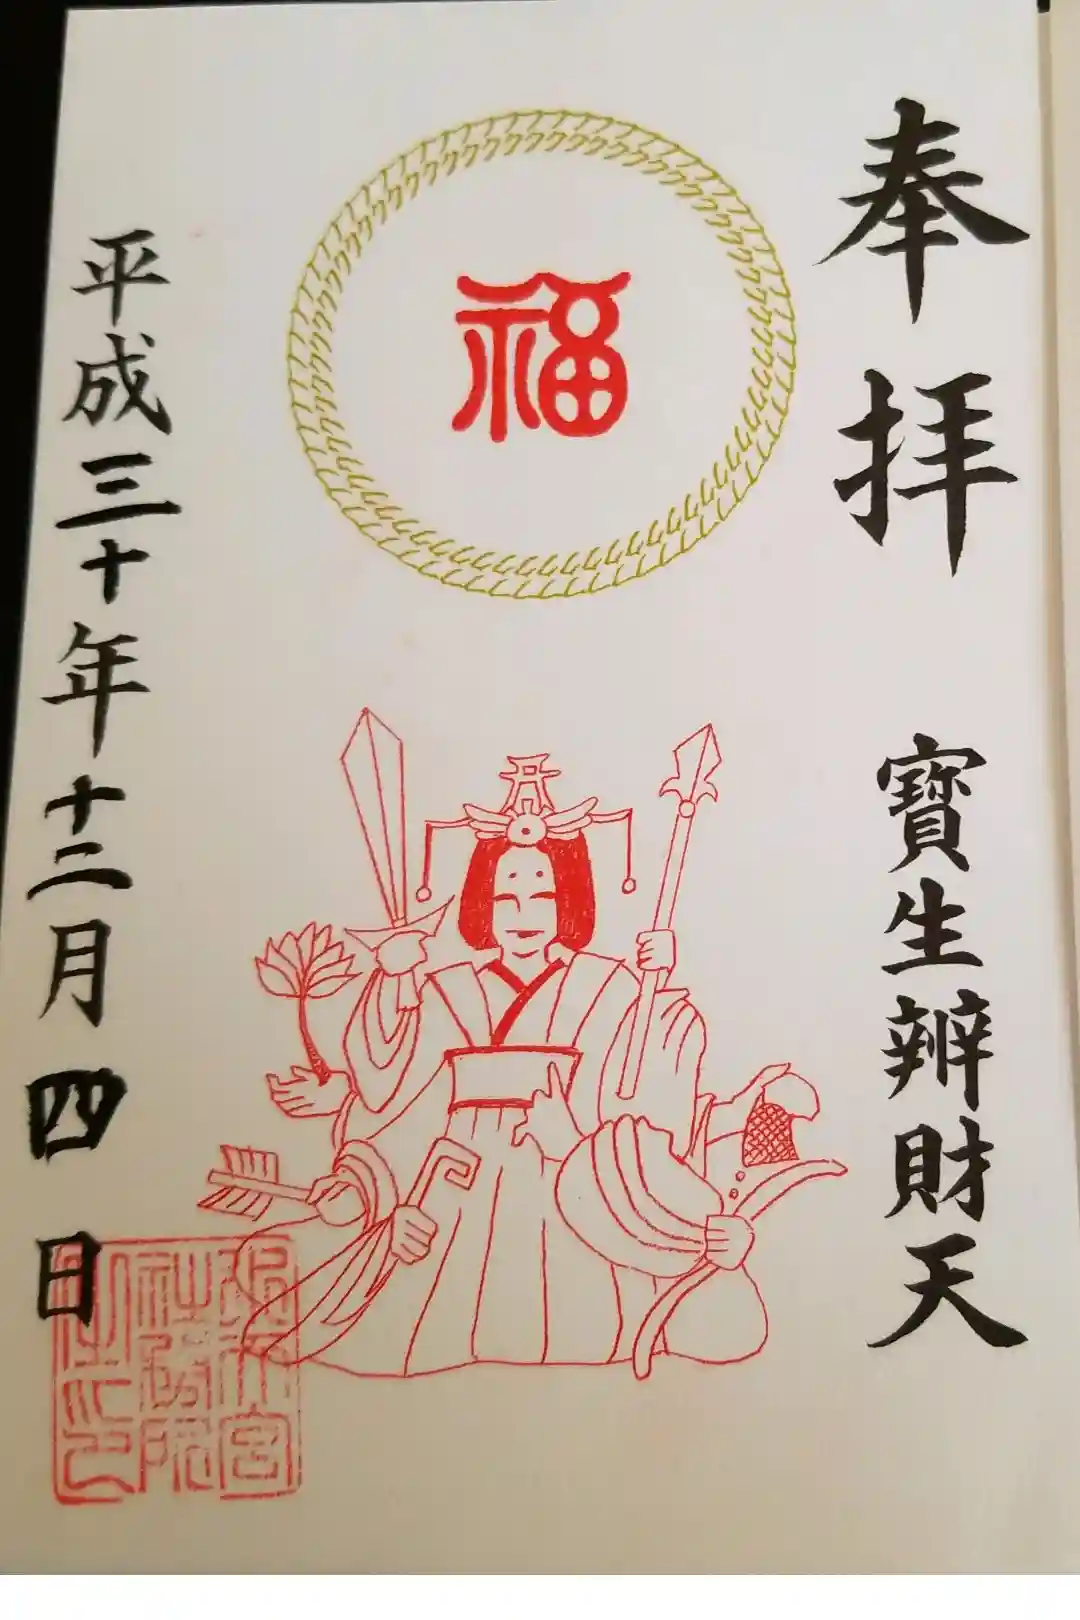 奉拝
寶生辨財天
福
平成三十年十二月四日